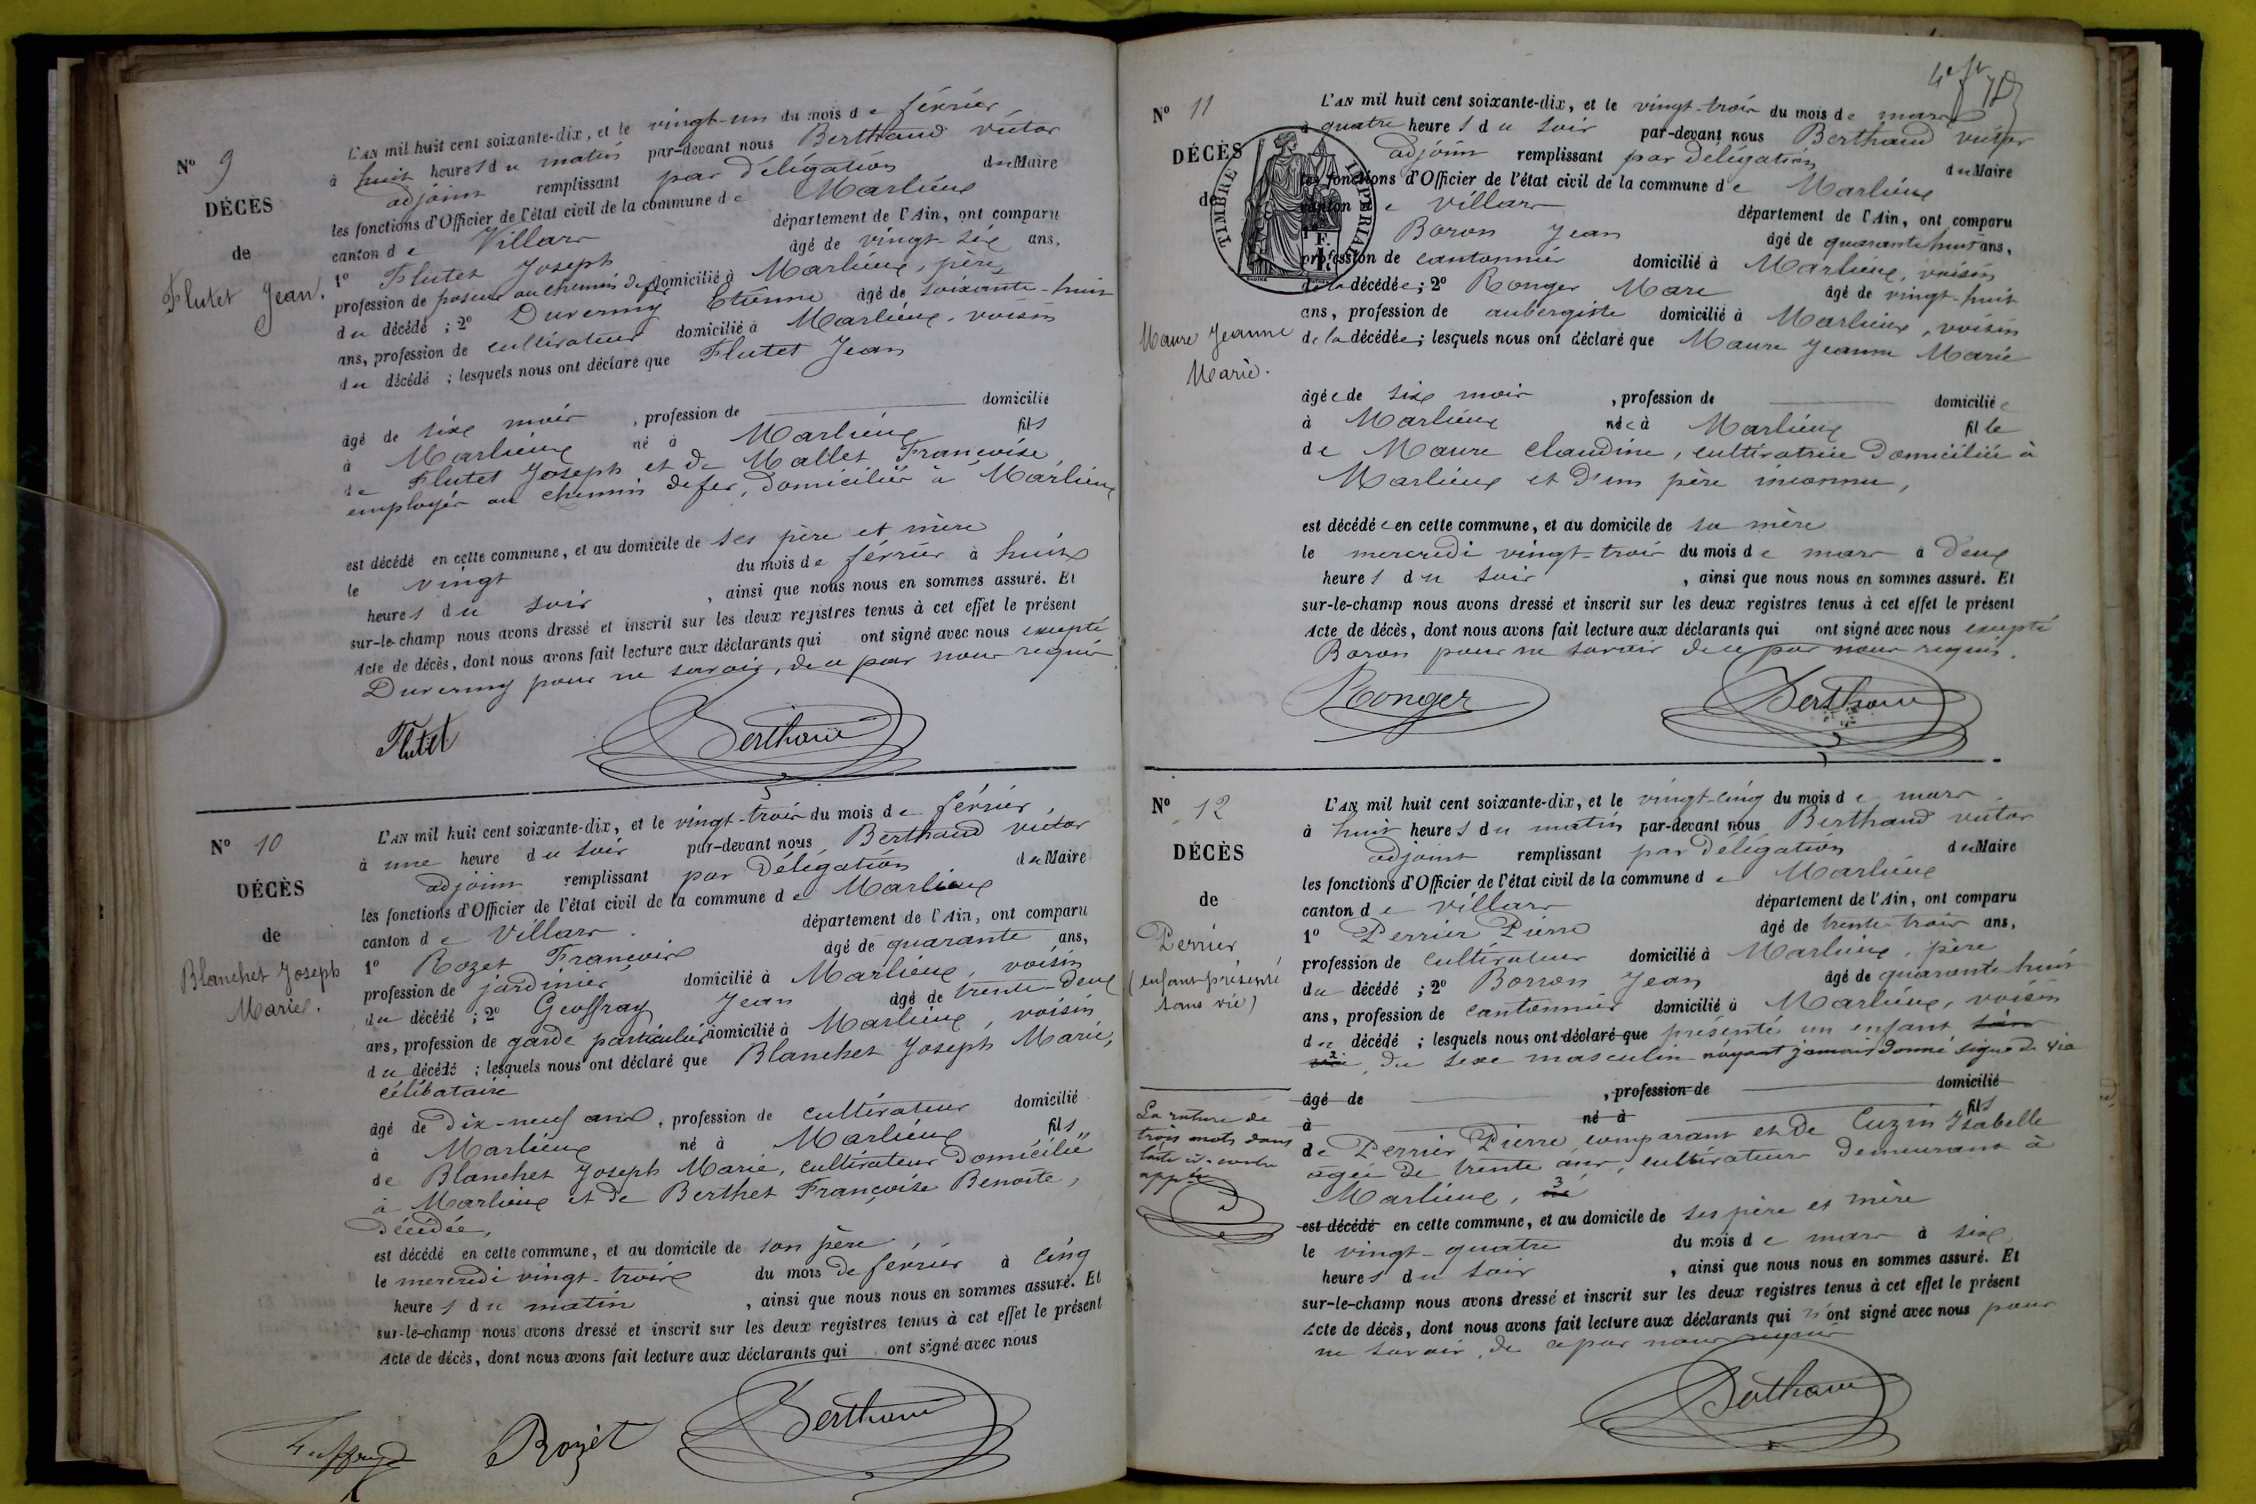 N° 9
DÉCÈS
de
Flutet Jean.
L'AN mil huit cent soixante-dix, et le vingt-un du mois de février
à huit heures du matin par-devant nous Berthaud victor
adjoint remplissant par délégation du Maire
les fonctions d'Officier de l'état civil de la commune de Marlieux
canton de Villars département de l'Ain, ont comparu
1° Flutet Joseph âgé de vingt-six ans,
profession de poseur au chemin de fer domicilié à Marlieux, père
du décédé ; 2° Duverny Etienne âgé de soixante-huit
ans, profession de cultivateur domicilié à Marlieux, voisin
du décédé ; lesquels nous ont déclaré que Flutet Jean
âgé de six mois , profession de domicilié
à Marlieux né à Marlieux fils
de Flutet Joseph et de Mallet Françoise
employés au chemin de fer, domiciliés à Marlieux
est décédé en cette commune, et au domicile de ses père et mère
le vingt du mois de février à huit
heures du soir , ainsi que nous nous en sommes assuré. Et
sur-le-champ nous avons dressé et inscrit sur les deux registres tenus à cet effet le présent
Acte de décès, dont nous avons fait lecture aux déclarants qui ont signé avec nous excepté
Duverny pour ne savoir, de ce par nous requis
Flutet Berthaud
N° 10
DÉCÈS
de
Blanchet Joseph
Marie.
L'AN mil huit cent soixante-dix, et le vingt-trois du mois de février,
à une heure du soir par-devant nous Berthaud victor
adjoint remplissant par délégation du Maire
les fonctions d'Officier de l'état civil de la commune de Marlieux
canton de Villars département de l'Ain, ont comparu
1° Rozet François âgé de quarante ans,
profession de jardinier domicilié à Marlieux, voisin
du décédé ; 2° Geoffray Jean âgé de trente-deux
ans, profession de garde particulier domicilié à Marlieux, voisin
du décédé ; lesquels nous ont déclaré que Blanchet Joseph Marie,
célibataire
âgé de dix-neuf ans , profession de cultivateur domicilié
à Marlieux né à Marlieux fils
de Blanchet Joseph Marie, cultivateur domicilié
à Marlieux et de Berthet Françoise Benoite,
décédée,
est décédé en cette commune, et au domicile de son père,
le mercredi vingt-trois du mois de février à cinq
heures du matin , ainsi que nous nous en sommes assuré. Et
sur-le-champ nous avons dressé et inscrit sur les deux registres tenus à cet effet le présent
Acte de décès, dont nous avons fait lecture aux déclarants qui ont signé avec nous
Rozet Berthaud
N° 11
DÉCÈS
de
TIMBRE IMPÉRIAL
Maure Jeanne
Marie.
L'AN mil huit cent soixante-dix, et le vingt-trois du mois de mars
à quatre heures du soir par-devant nous Berthaud victor
adjoint remplissant par délégation du Maire
les fonctions d'Officier de l'état civil de la commune de Marlieux
canton de Villars département de l'Ain, ont comparu
Boron Jean âgé de quarante huit ans,
profession de cantonnier domicilié à Marlieux, voisin
de la décédée ; 2° Ronger Marc âgé de vingt-huit
ans, profession de aubergiste domicilié à Marlieux, voisin
de la décédée ; lesquels nous ont déclaré que Maure Jeanne Marie
âgée de six mois , profession de domiciliée
à Marlieux née à Marlieux fille
de Maure Claudine, cultivatrice domiciliée à
Marlieux et d'un père inconnu,
est décédée en cette commune, et au domicile de sa mère
le mercredi vingt-trois du mois de mars à deux
heures du soir , ainsi que nous nous en sommes assuré. Et
sur-le-champ nous avons dressé et inscrit sur les deux registres tenus à cet effet le présent
Acte de décès, dont nous avons fait lecture aux déclarants qui ont signé avec nous excepté
Boron pour ne savoir de ce par nous requis.
Ronger Berthaud
N° 12
DÉCÈS
de
Perrier
(enfant présenté
sans vie)
L'AN mil huit cent soixante-dix, et le vingt-cinq du mois de mars
à huit heures du matin par-devant nous Berthaud victor
adjoint remplissant par délégation du Maire
les fonctions d'Officier de l'état civil de la commune de Marlieux
canton de Villars département de l'Ain, ont comparu
1° Perrier Pierre âgé de trente-trois ans,
profession de cultivateur domicilié à Marlieux, père
du décédé ; 2° Borron Jean âgé de quarante huit
ans, profession de cantonnier domicilié à Marlieux, voisin
du décédé ; lesquels nous ont déclaré que présenté un enfant sans
vie, du sexe masculin n'ayant jamais donné signe de vie
âgé de , profession de domicilié
à né à fils
de Perrier Pierre, comparant et de Cuzin Isabelle
agée de trente ans, cultivateurs demeurant à
Marlieux,
est décédé en cette commune, et au domicile de ses père et mère
le vingt-quatre du mois de mars à six
heures du soir , ainsi que nous nous en sommes assuré. Et
sur-le-champ nous avons dressé et inscrit sur les deux registres tenus à cet effet le présent
Acte de décès, dont nous avons fait lecture aux déclarants qui n'ont signé avec nous pour
ne savoir, de ce par nous requis
La rature de
trois mots dans
l'acte ci-contre
Berthaud